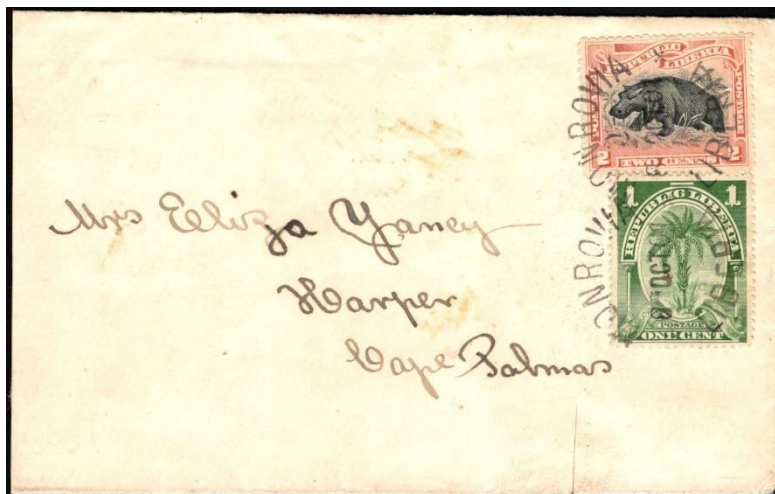 REPUBLIC LIBERIA
POSTAGE
POSTAGE
2 TWO CENTS 2
MONROVIA
LIBERIA
1 1
REPUBLIC LIBERIA
POSTAGE
ONE CENT
MONROVIA
OCT
LIBERIA
Mrs Elliza Yancy
Harper
Cape Palmas